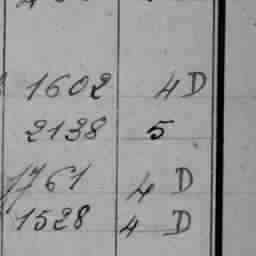 1602 4D
2138 5
1761 4 D
1528 4 D